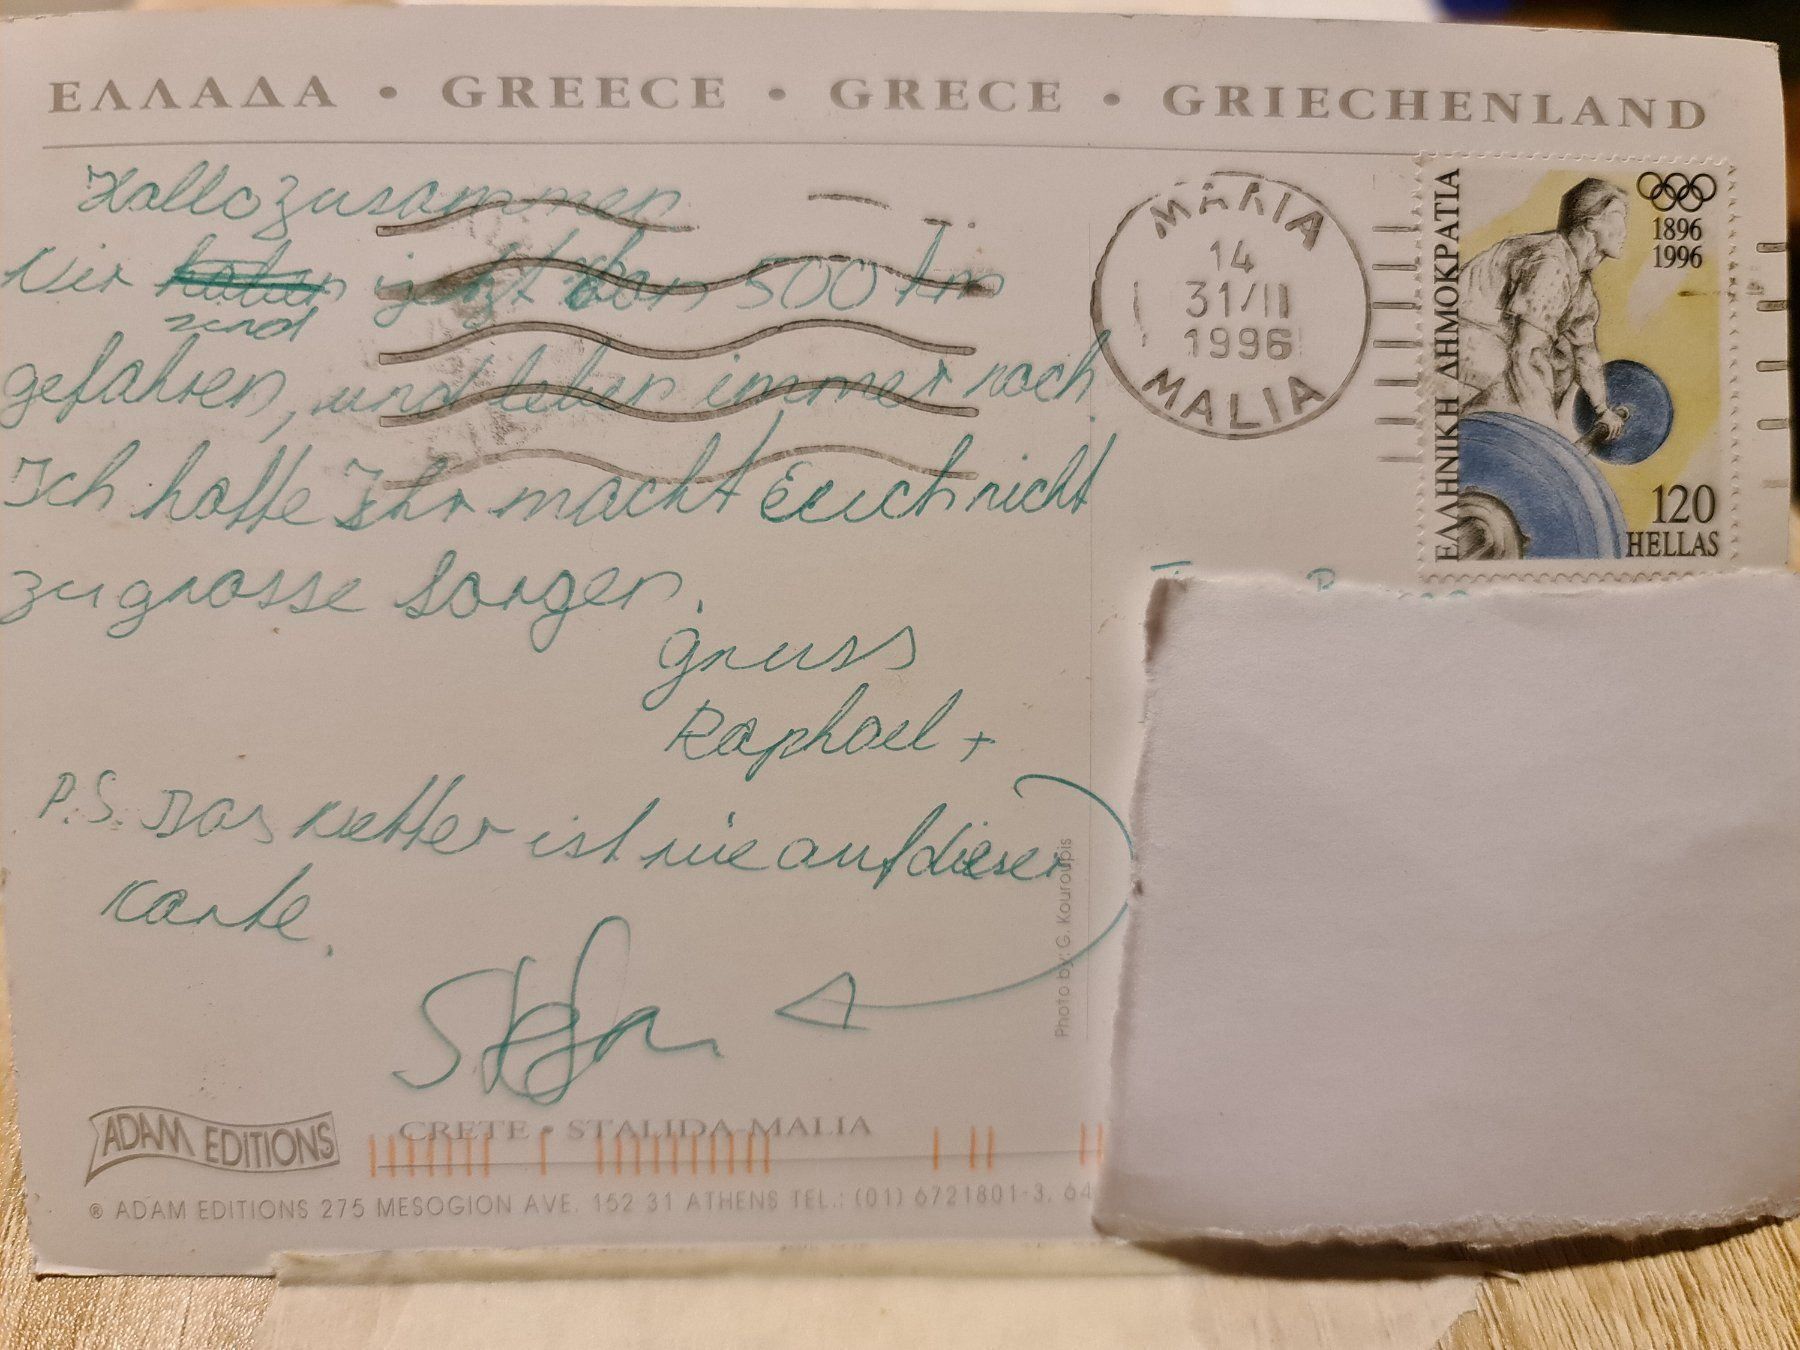 ΕΛΛΑΔΑ • GREECE • GRECE • GRIECHENLAND
Hallo zusammen
Wir haben jetzt von 500 km
sind
gefahren, und leben immer noch
Ich hoffe Ihr macht Euch nicht
zu grosse Sorgen.
Gruss
Raphael +
P.S. Das Wetter ist wie auf dieser
Karte.
Stefan
ΜΑΛΙΑ
14
31/II
1996
MALIA
ΕΛΛΗΝΙΚΗ ΔΗΜΟΚΡΑΤΙΑ
1896
1996
120
HELLAS
Photo by: G. Kouroupis
ADAM EDITIONS
CRETE • STALIDA-MALIA
® ADAM EDITIONS 275 MESOGION AVE. 152 31 ATHENS TEL.: (01) 6721801-3, 64